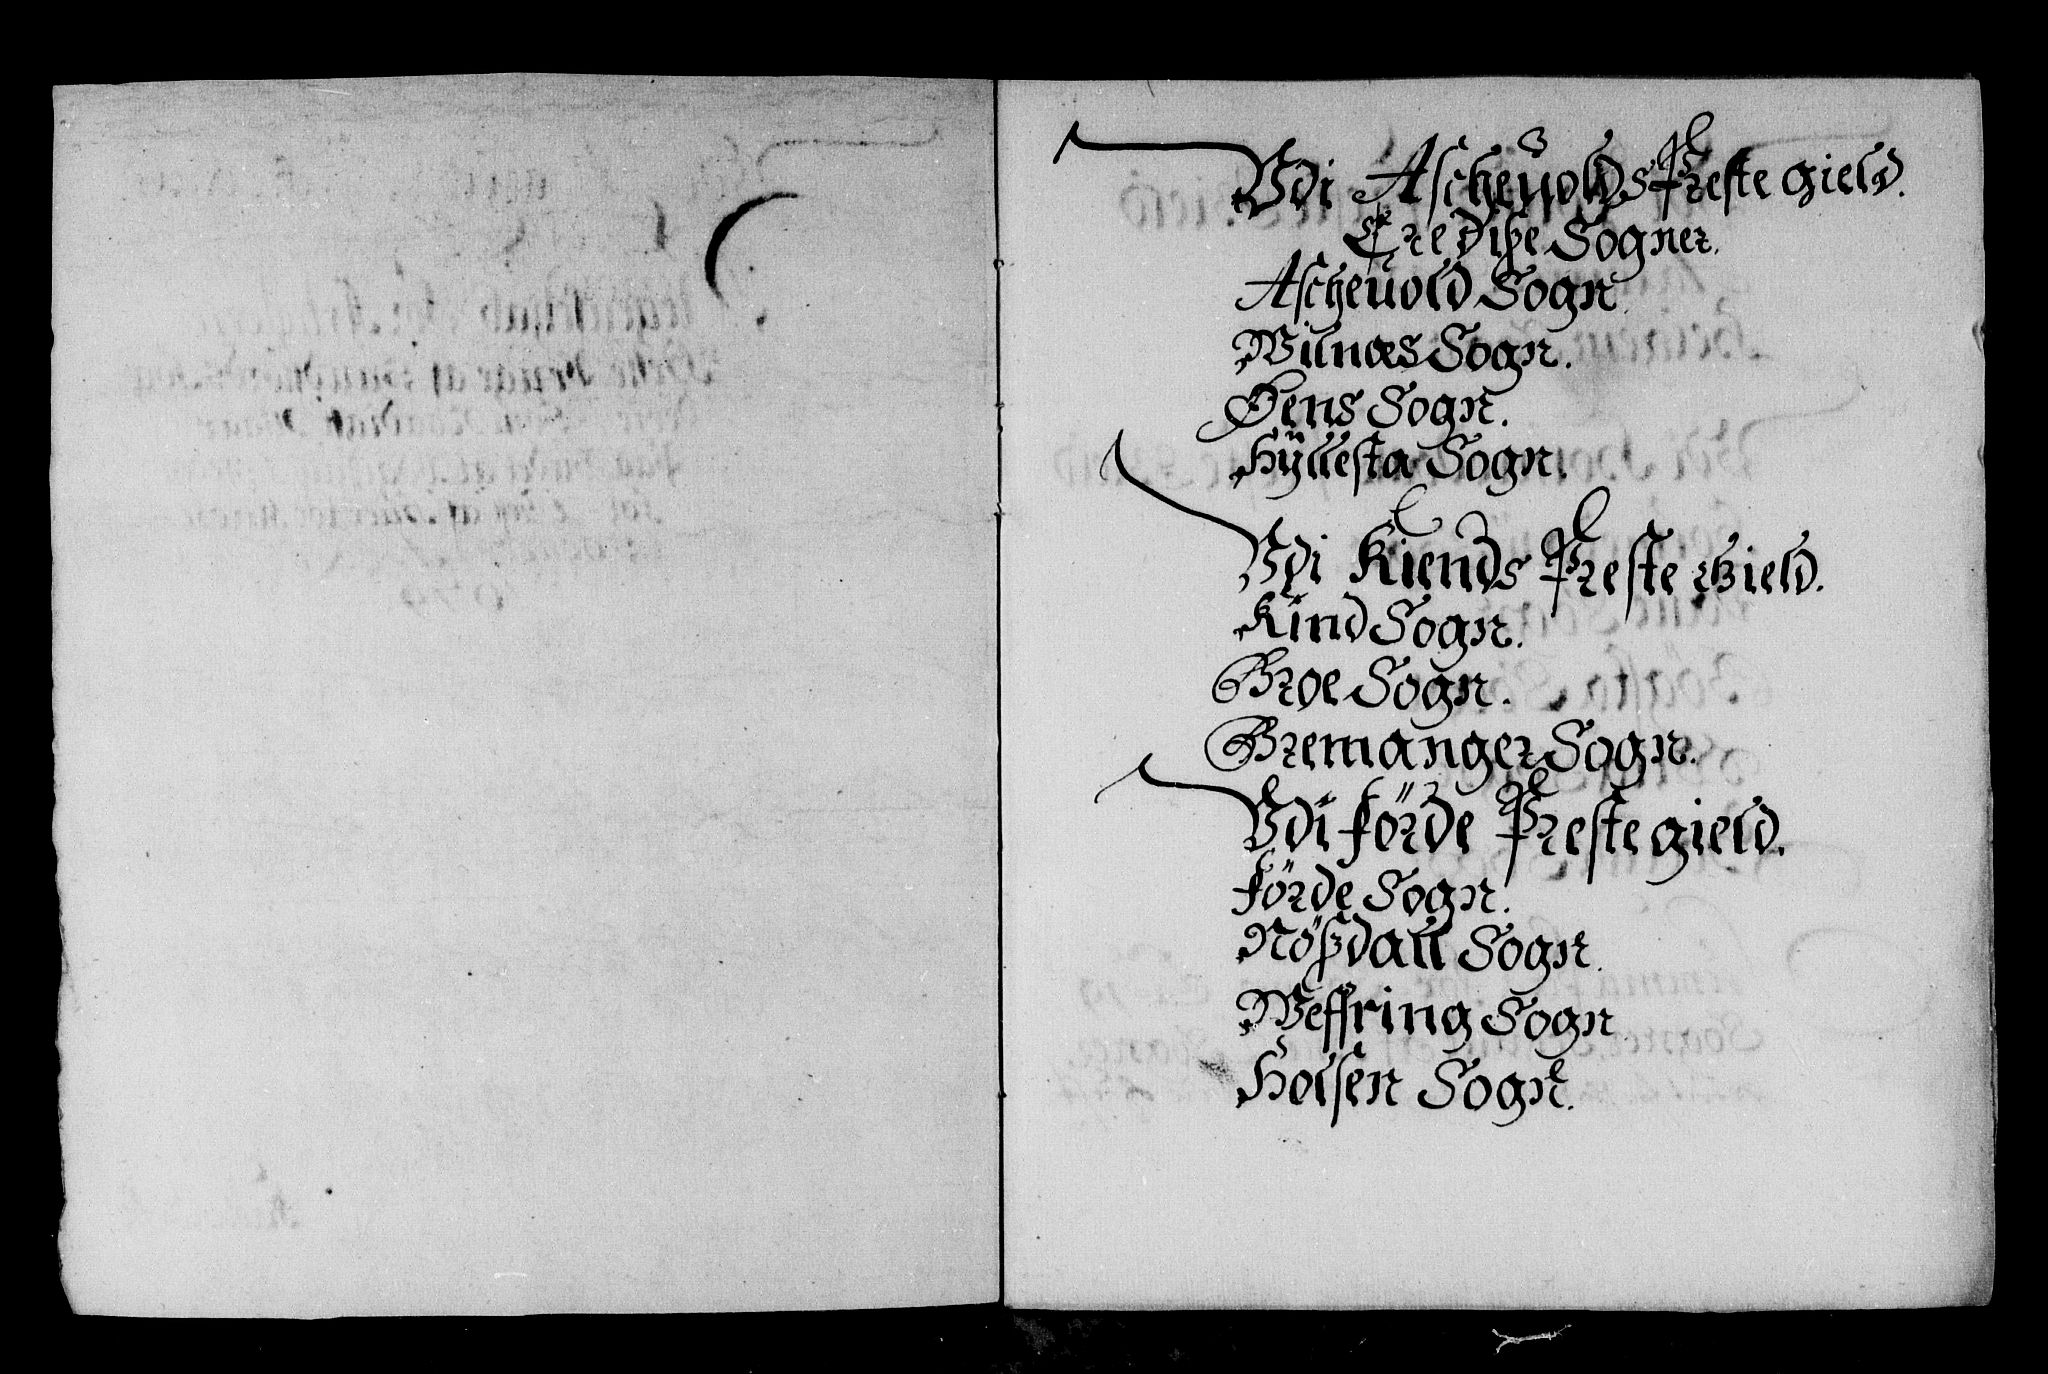 Vdi Ascheuolds Preste gield.
Ere diße Sogner.
Ascheuold Sogn
Wilnæs Sogn.
Øens Sogn.
Hÿllesta Sogn.
Vdi Kiends Preste Gield.
Kind Sogn.
Broe Sogn.
Bremanger Sogn.
Vdi förde Preste gield.
förde Sogn.
Nößdall Sogn.
Weffring Sogn
Holsen Sogn.